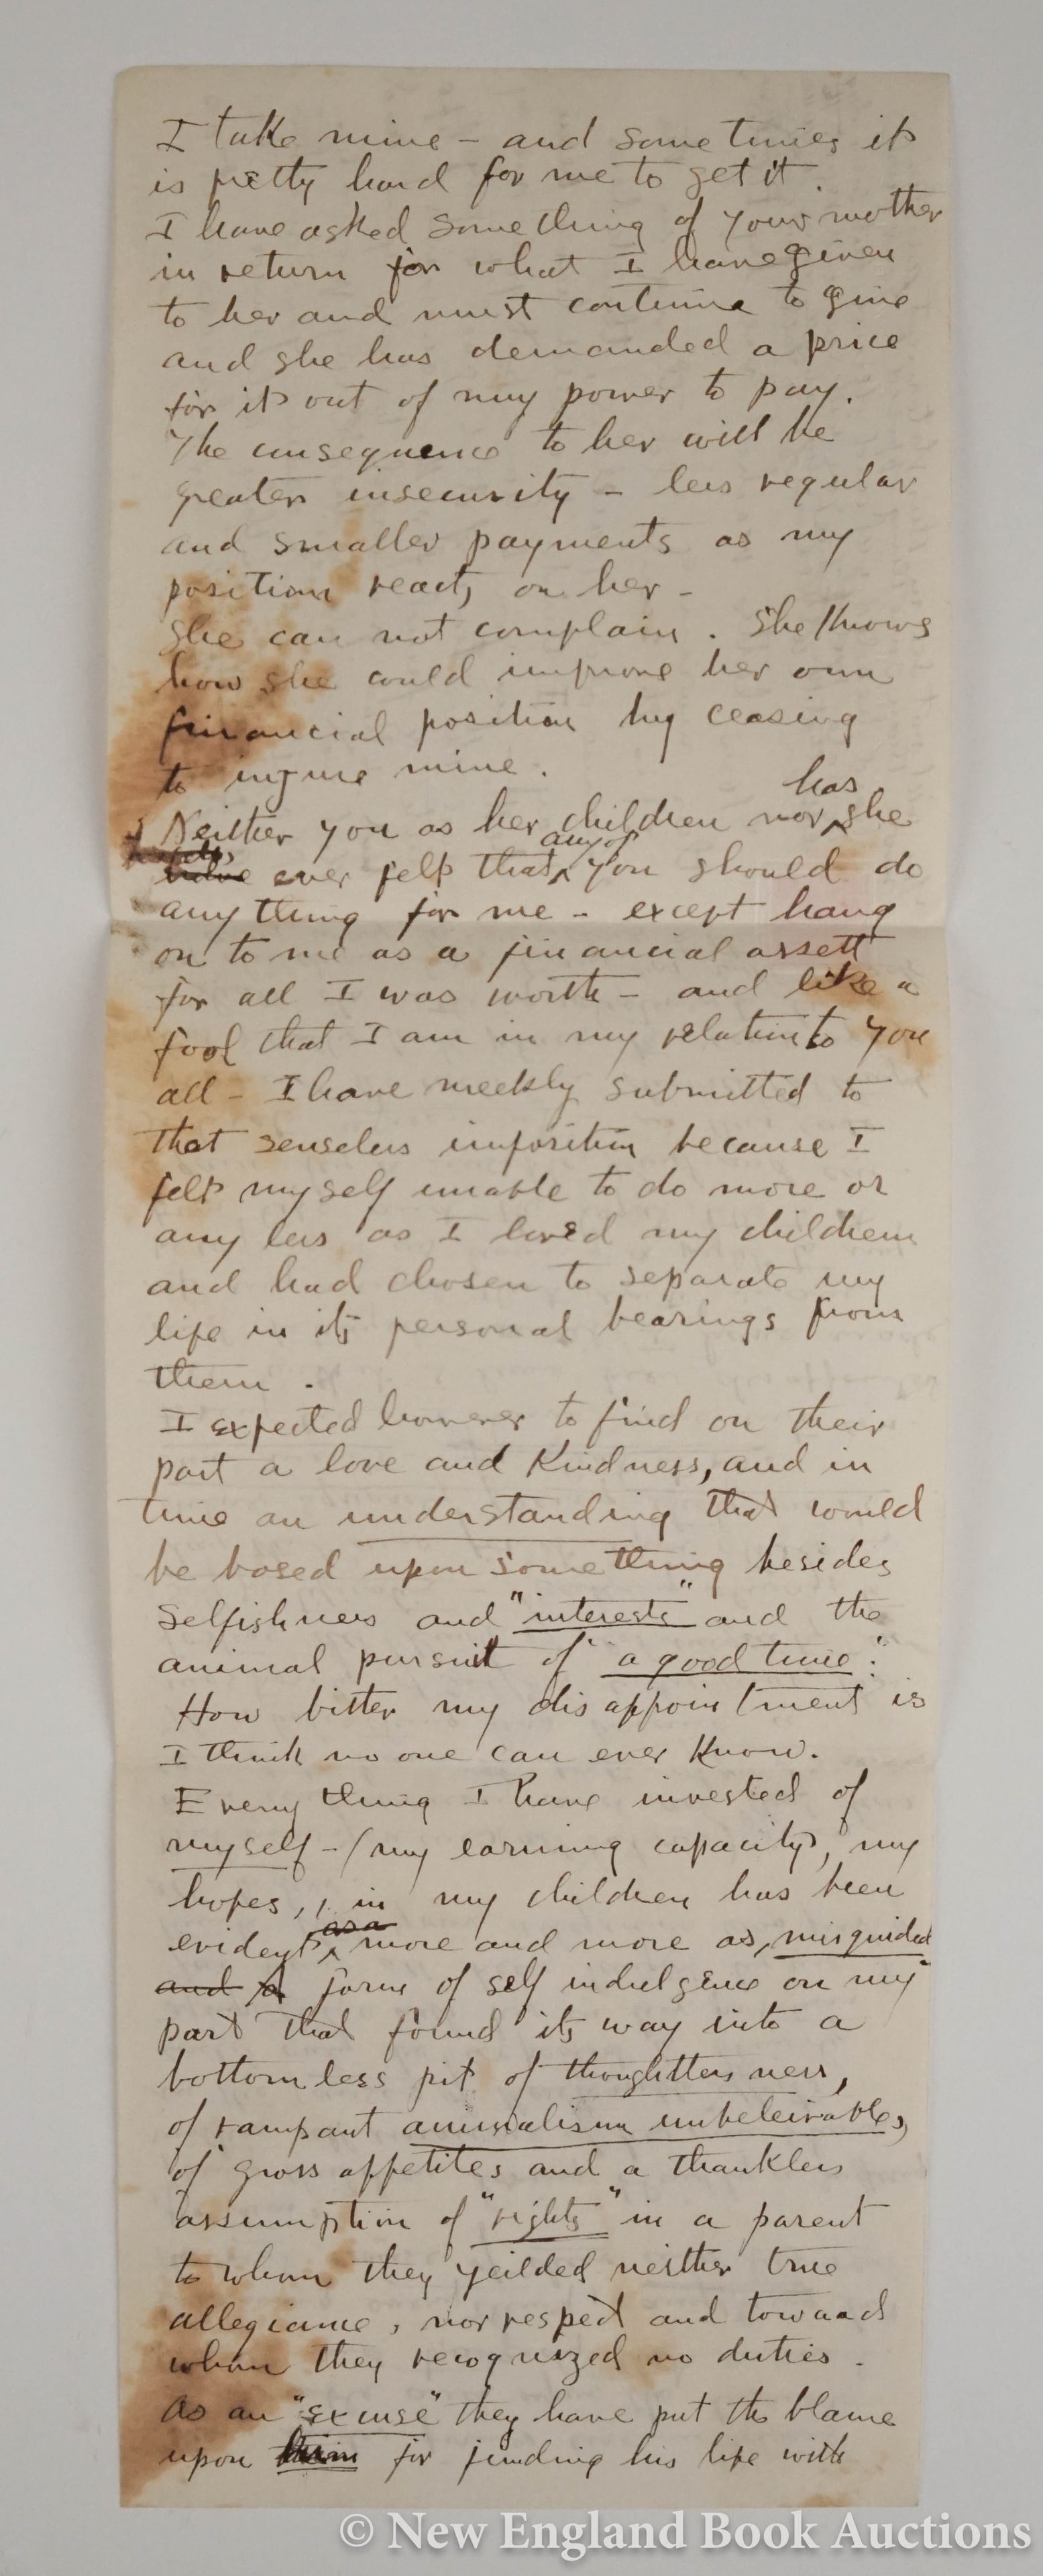 I take mine – and sometimes it
is pretty hard for me to get it.
I have asked something of your mother
in return for what I have given
to her and must continue to give
and she has demanded a price
for it out of my power to pay.
The consequence to her will be
greater insecurity – less regular
and smaller payments as my
position reacts on her –
She can not complain. She knows
how she could improve her own
financial position by ceasing
to injure mine.
has
Neither you as her children nor she
any of
ever felt that you should do
anything for me – except hang
on to me as a financial assett
for all I was worth – and like a
fool that I am in my relation to you
all – I have meekly submitted to
that senseless imposition because I
felt myself unable to do more or
any less as I loved my children
and had chosen to separate my
life in its personal bearings from
them.
I expected however to find on their
part a love and kindness, and in
time an understanding that would
be based upon something besides
selfishness and "interests" and the
animal pursuit of "a good time".
How bitter my disappointment is
I think no one can ever know.
Every thing I have invested of
myself – (my earning capacity, my
hopes, in my children has been
as a
evident, more and more as, misguided
and a form of self indulgence on my
part that found its way into a
bottomless pit of thoughtlessness,
of rampant animalism unbeleivable,
of gross appetites and a thankless
assumption of "rights" in a parent
to whom they yeilded neither true
allegiance, nor respect and toward
whom they recognized no duties.
As an "excuse" they have put the blame
upon him for finding his life with
© New England Book Auctions